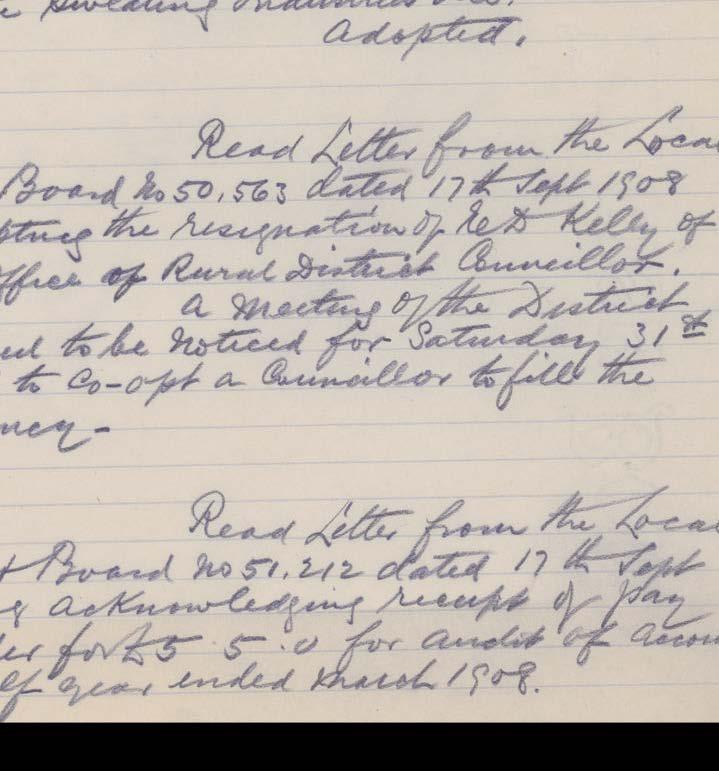 Sweating Industries
Adopted.
Read Letter from the Loca
Board No 50,563 dated 17th Sept 1908
pting the resignation of E D Kelly of
ffice of Rural District Councillor.
A Meeting of the District
to be noticed for Saturday 31st
to Co-opt a Councillor to fill the
ncy -
Read Letter from the Loca
t Board No 51,212 dated 17th Sept
g acknowledging receipt of pay
er for £5.5.0 for audit of Accou
lf year ended March 1908.